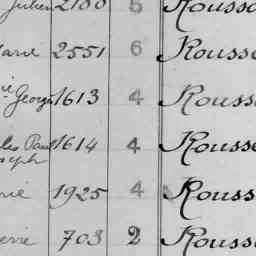 Julien 2180 5 Rousse
Marie 2551 6 Rousse
Georges 1613 4 Rousse
Paul 1614 4 Rousse
Joseph
1925 4 Rouss
703 2 Rousse